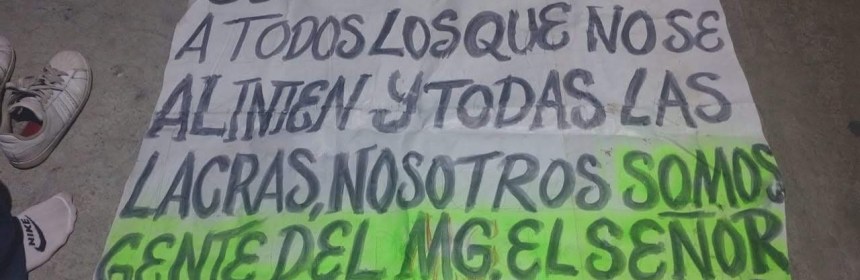 A TODOS LOS QUE NO SE
ALINIEN Y TODAS LAS
LACRAS, NOSOTROS SOMOS
GENTE DEL MG. EL SEÑOR
NIKE